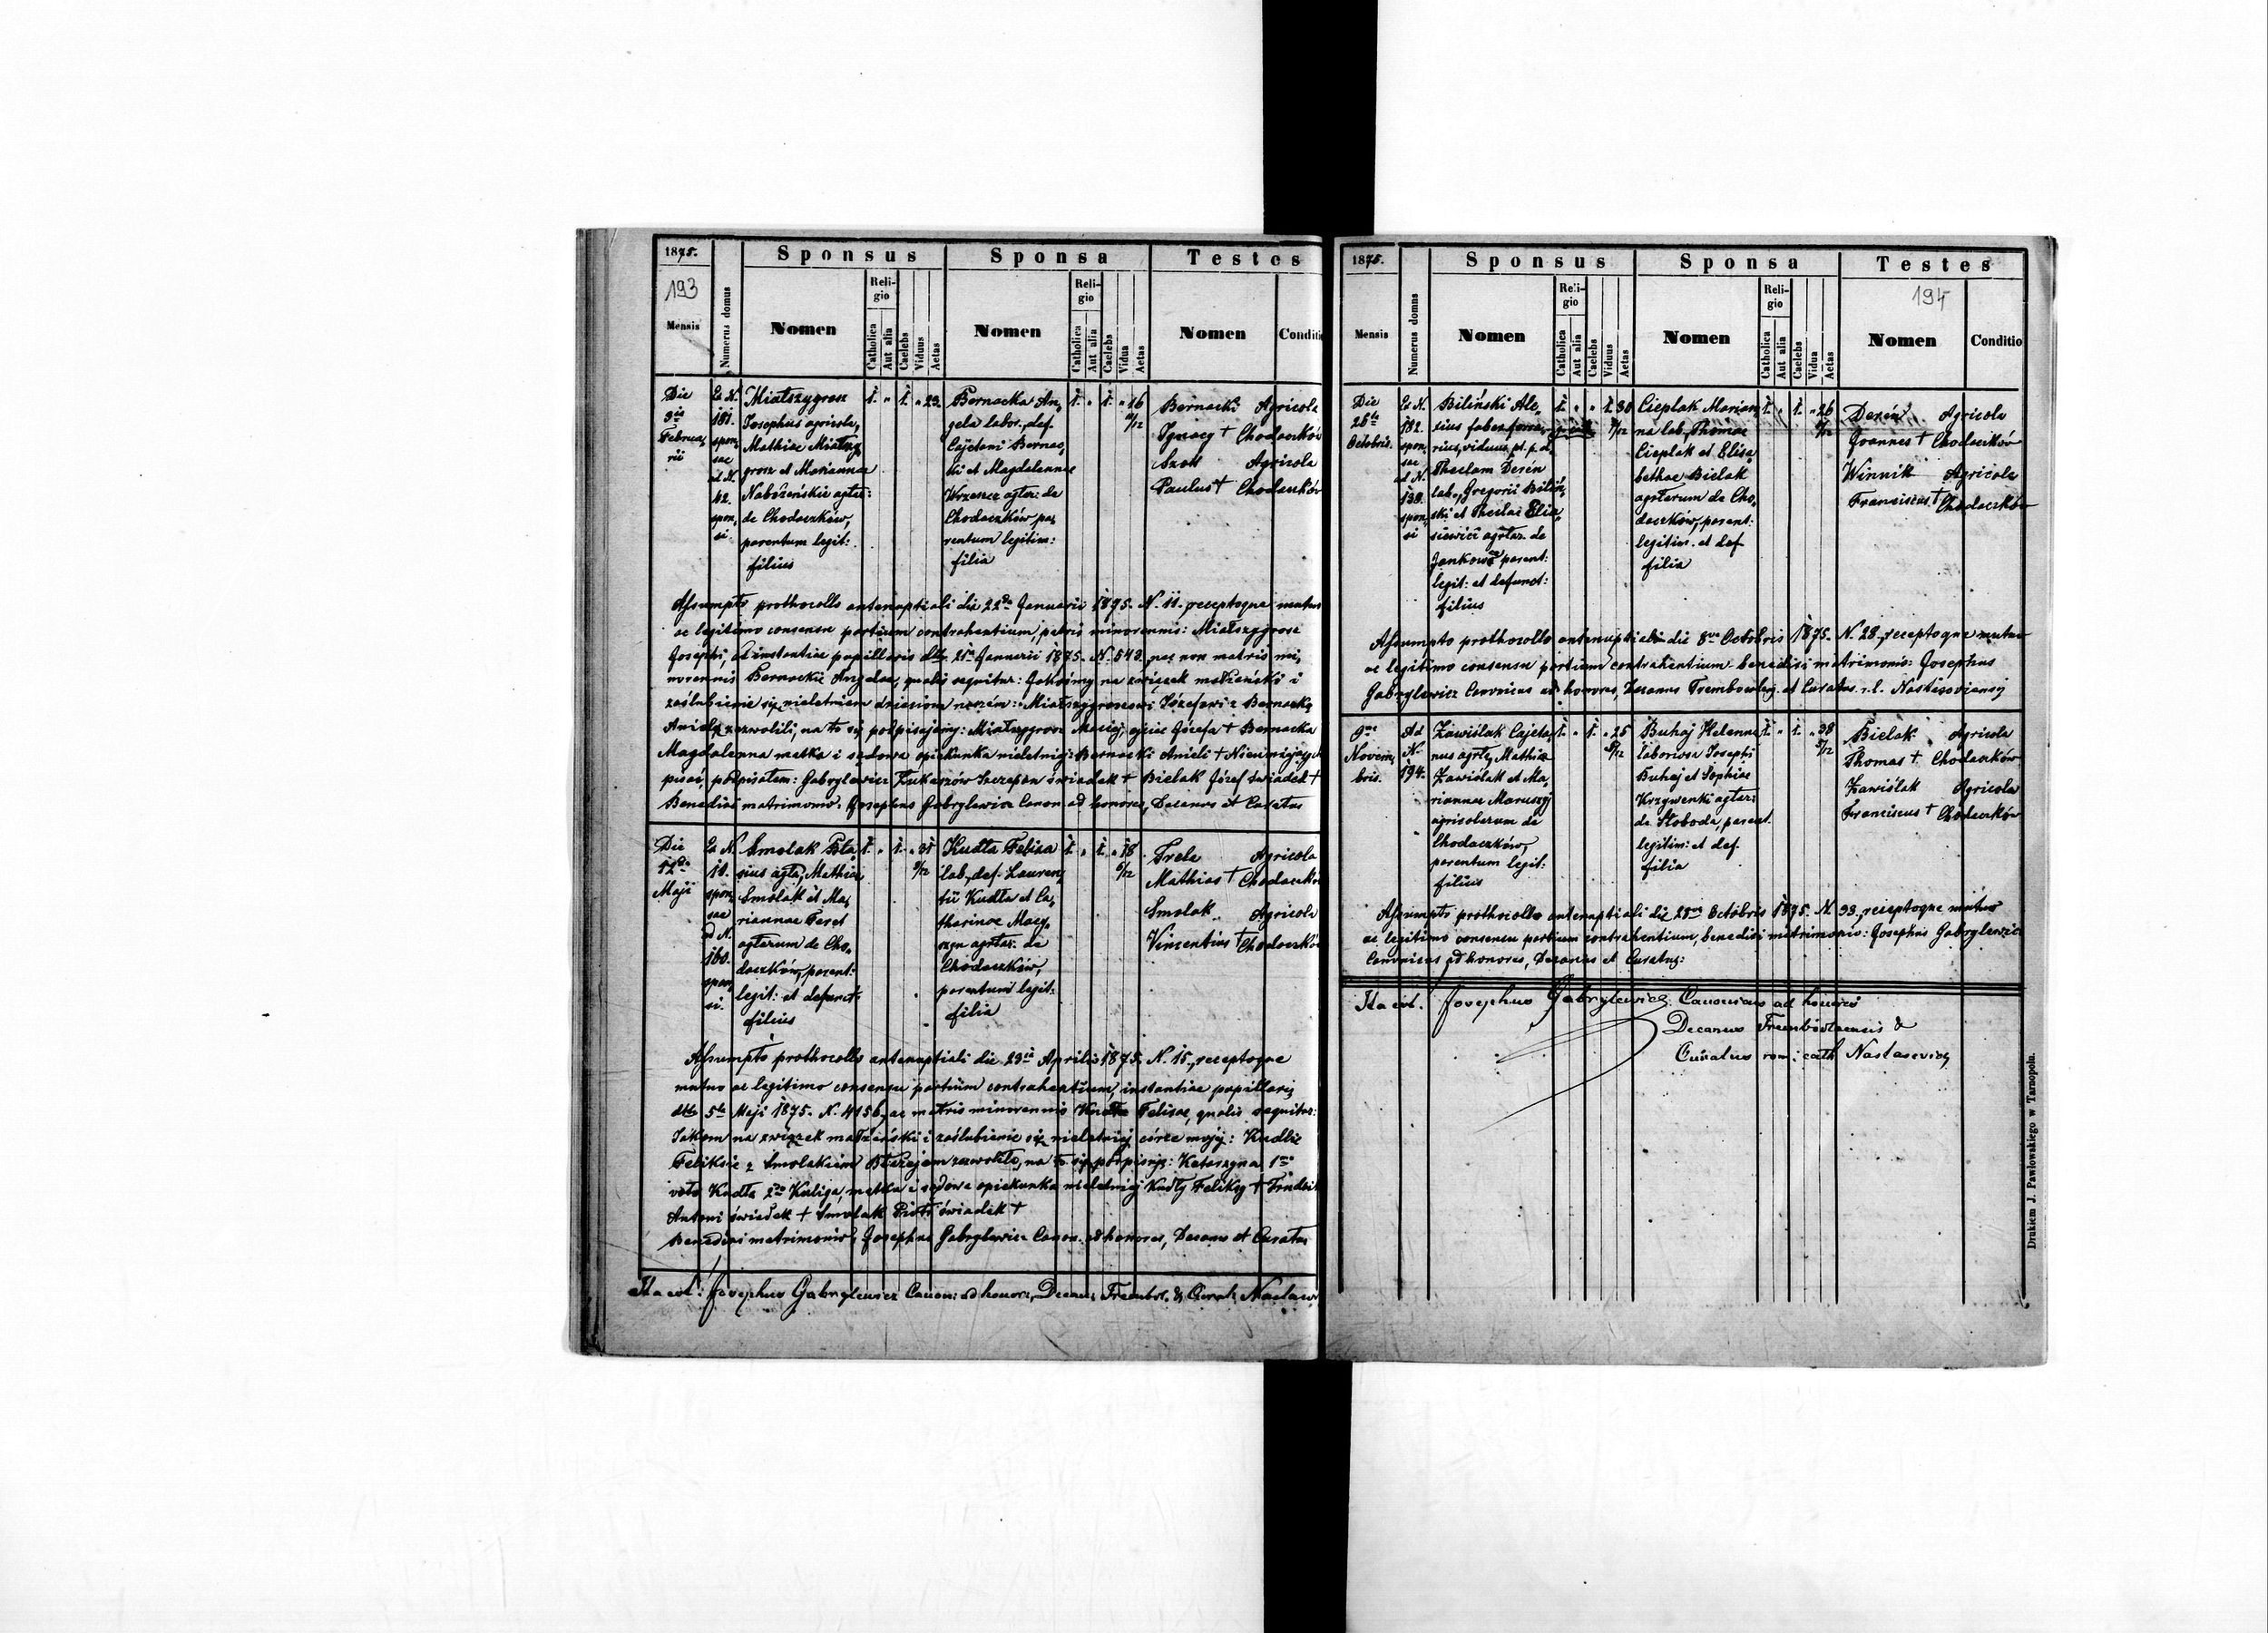 1875.
193
Mensis
Numerus domus
Sponsus
Nomen
Religio
Catholica
Aut alia
Caelebs
Viduus
Aetas
Sponsa
Nomen
Religio
Catholica
Aut alia
Caelebs
Vidua
Aetas
Testes
Nomen
Conditi
Die
3ia
Februa,
rii
Ex N.
181.
spon,
sae
ad N.
42.
spon,
si
Miałszygrosz
Josephus agricola,
Mathiae Miałszy,
grosz et Mariannae
Nabożeńskie agter:
de Chodaczków,
parentum legit:
filius
1. " 1. " 23.
Bernacka An,
gela labor., def.
Cajetani Bernac,
ki et Magdalennae
Wrzeszcz agter: de
Chodaczków pa,
rentum legitim:
filia
1. " 1. " 16
Bernacki Agricola
Ignacy + Chodaczków
Szok Agricola
Paulus + Chodaczków
Assumpto prothocollo antenuptiali die 22da Januarii 1875. N. 11. receptoque mutuo
ac legitimo consensu partium contrahentium, patris minorennis: Miałszygrosz
Josephi, instantiae pupillaris dtto 21a Januarii 1875. N. 543. nec non matris mi,
norennis Bernackie Angelae, qualis sequitur: Jakośmy na związek małżeński i
zaślubienie się nieletniem dzieciom naszém: Miałszygroszowi Józefowi z Bernacką
Anielą zezwolili, na to się podpisujemy: Miałszygrosz Maciej, ojciec Józefa + Bernacka
Magdalenna matka i sądowa opiekunka nieletniej: Bernacki Anieli + Nieumiejących
pisać, podpisałem: Gabrylewicz Łukaszów Szczepan świadek + Bielak Józef świadek +
Benedixi matrimonio: Josephus Gabrylewicz Canon. ad honores, Decanus et Curatus
Die
12da
Maji
Ex N.
11.
spon,
sae
ad N.
160.
spon,
si.
Smolak Bla,
sius agla, Mathiae
Smolak et Ma,
riannae Feret
agterum de Cho,
daczków, parent:
legit: et defunct:
filius
1. " 1. " 31
9/12
Kudła Felixa
lab., def. Lauren,
tii Kudła et Ca,
tharinae
agter: de
Chodaczków,
parentum legit:
filia
1. " 1. " 18
6/12
Trela Agricola
Mathias + Chodaczków
Smolak Agricola
Vincentius + Chodaczków
Assumpto prothocollo antenuptiali die 23ia Aprilis 1875. N. 15. receptoque
mutuo ac legitimo consensu partium contrahentium, instantiae pupillaris
dtto 5ta Maji 1875. N. 4156, ac matris minorennis Kudła Felixae, qualis sequitur:
Jakom na związek małżeński i zaślubienie się nieletniej córce mojej: Kudle
Feliksie z Smolakiem Błażejem zezwoliła, na to się podpisuję: Katarzyna 1mo
voto Kudła 2do Kuliga, matka i sądowa opiekunka nieletniej Kudły Feliksy +
Antoni świadek + Smolak Piotr świadek +
Benedixi matrimonio: Josephus Gabrylewicz Canon. ad honores, Decanus et Curatus
Ita est: Josephus Gabrylewicz Canon: ad honores, Decanus Trembol. & Curat.
1875.
Mensis
Numerus domus
Sponsus
Nomen
Religio
Catholica
Aut alia
Caelebs
Viduus
Aetas
Sponsa
Nomen
Religio
Catholica
Aut alia
Caelebs
Vidua
Aetas
Testes
194
Nomen
Conditio
Die
26ta
Octobris.
Ex N.
182.
spon,
sae
ad N.
138.
spon,
si
Biliński Ale,
xius faber ferra,
rius, viduus pt. p. d.
Theclam Dereń
lab., Gregorii Biliń,
ski et Theclae
agter. de
parent:
legit: et defunct:
filius
1. " " 1. 30
Cieplak Marian,
na lab., Thomae
Cieplak et Elisa,
bethae Bielak
agterum de Cho,
daczków, parent:
legitim. et def
filia
1. " 1. " 26
Dereń Agricola
Joannes + Chodaczków
Winnik Agricola
Franciscus + Chodaczków
Assumpto prothocollo antenuptiali die 8va Octobris 1875. N. 28. receptoque mutuo
ac legitimo consensu partium contrahentium benedixi matrimonio: Josephus
Gabrylewicz Canonicus ad honores, Decanus Trembowley. et Curatus r. l. Nastasoviensis
9na
Novem,
bris.
Ad
N.
194.
Zawiślak Cajeta,
nus agla, Mathiae
Zawiślak et Ma,
riannae Maruszij
agricolarum de
Chodaczków,
parentum legit:
filius
1. " 1. " 25
Buhaj Helenna
laboriosa Josephi
Buhaj et Sophiae
Krzywenki agter:
de Słoboda, parent.
legitim: et def.
filia
1. " 1. " 38
5/12
Bielak Agricola
Thomas + Chodaczków
Zawiślak Agricola
Franciscus + Chodaczków
Assumpto prothocollo antenuptiali die 28va Octobris 1875. N. 33. receptoque mutuo
ac legitimo consensu partium contrahentium, benedixi matrimonio: Josephus Gabrylewicz
Canonicus ad honores, Decanus et Curatus:
Ita est. Josephus Gabrylewicz Canonicus ad honores
Decanus &
Curatus rom: cath
Drukiem J. Pawłowskiego w Tarnopolu.